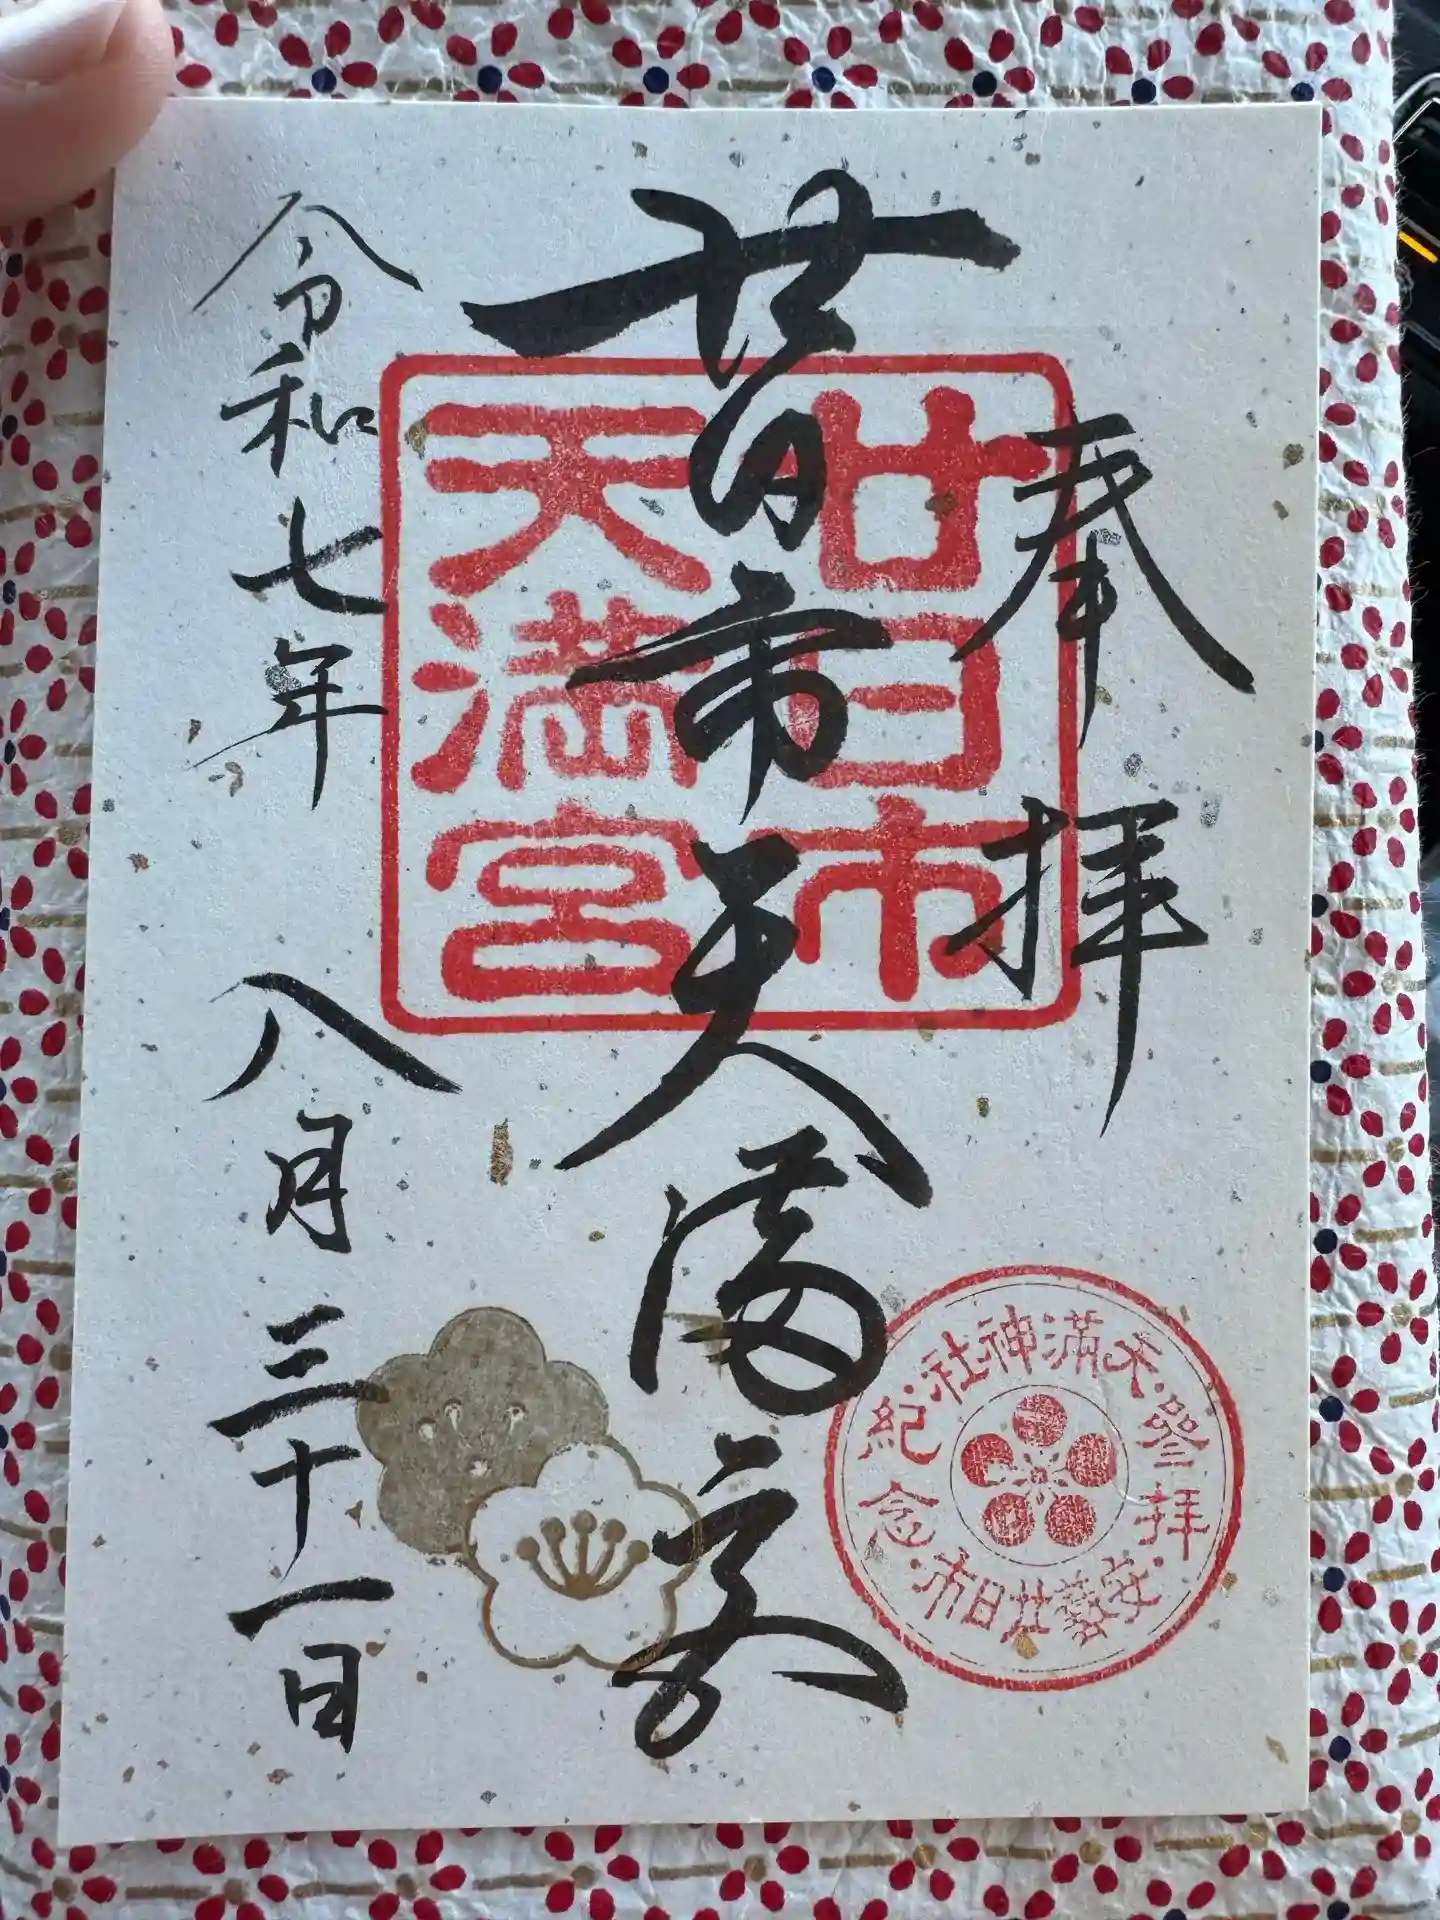 奉拝
廿日市天満宮
令和七年八月三十一日
廿日市
天満宮
天満神社
参拝
紀念
安藝廿日市